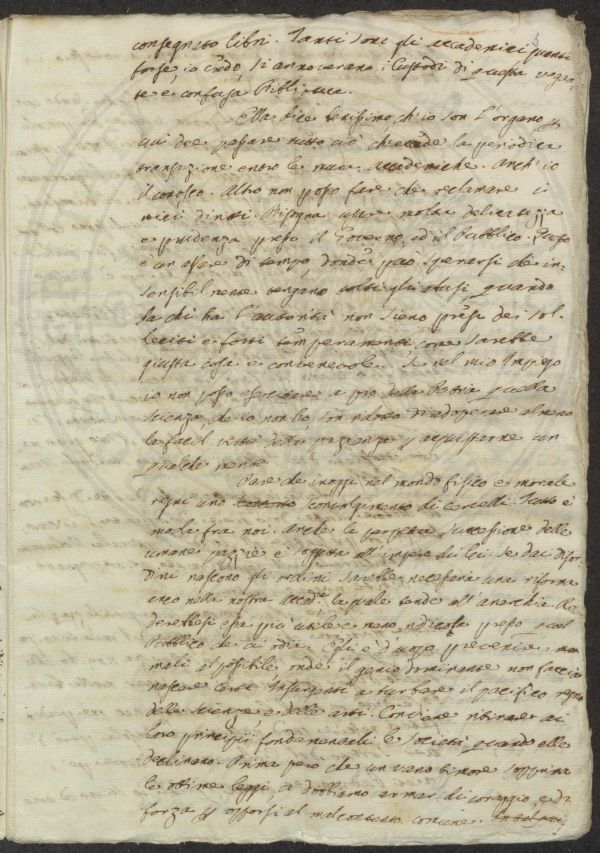 consegnato libri. Tanti sono gli accademici quanti
forse, io credo si annoverano i Custodi di questa vagan-
te e confusa Biblioteca.
Ella dice benissimo ch'io son l'organo, per
cui dee passare tutto ciò ch'eccede la periodica
transazione entro le mura accademiche. Anch'io
il conosco. Altro non posso fare che reclamare i
miei diritti. Bisogna usar molta delicatezza
e prudenza presso il Governo, ed il Pubblico. Questo
è un affare di tempo, donde può sperarsi che in-
sensibilmente vengano tolti gli abusi, quando
da chi ha l'autorità non sieno presi dei sol-
leciti e forti temperamenti come sarebbe
giusta cosa e convenevole. Se nel mio Impiego
io non posso esercitare a pro della Patria quella
scienza, che io non ho, son ridotto di adoperare almeno
la facil virtù della pazienza per acquistarne un
qualche merito.
Pare che in oggi nel mondo fisico e morale
regni uno sconvolgimento di cervelli. Tutto è
moda fra noi. Anche la perpetua successione delle
umane pazzie è soggetta all'impero di lei. Se dai disor-
dini nascono gli ordini sarebbe necessaria una riforma
anco nella nostra Accd.ia la quale tende all'anarchia. Ren-
derebbesi essa più utile e meno ridicola presso quel
Pubblico che ci ride. Egli è d'uopo prevenire i
mali il possibile, onde il genio dominante non faccia
nascere certi Insurgenti a turbare il pacifico regno
delle scienze e delle arti. Conviene ritirare ai
loro principii fondamentali le società quando elle
declinano. Prima però che un vano timore sopprima
le ottime leggi, ci dobbiamo armar di coraggio, e di
forza per opporsi al malcontento comune.